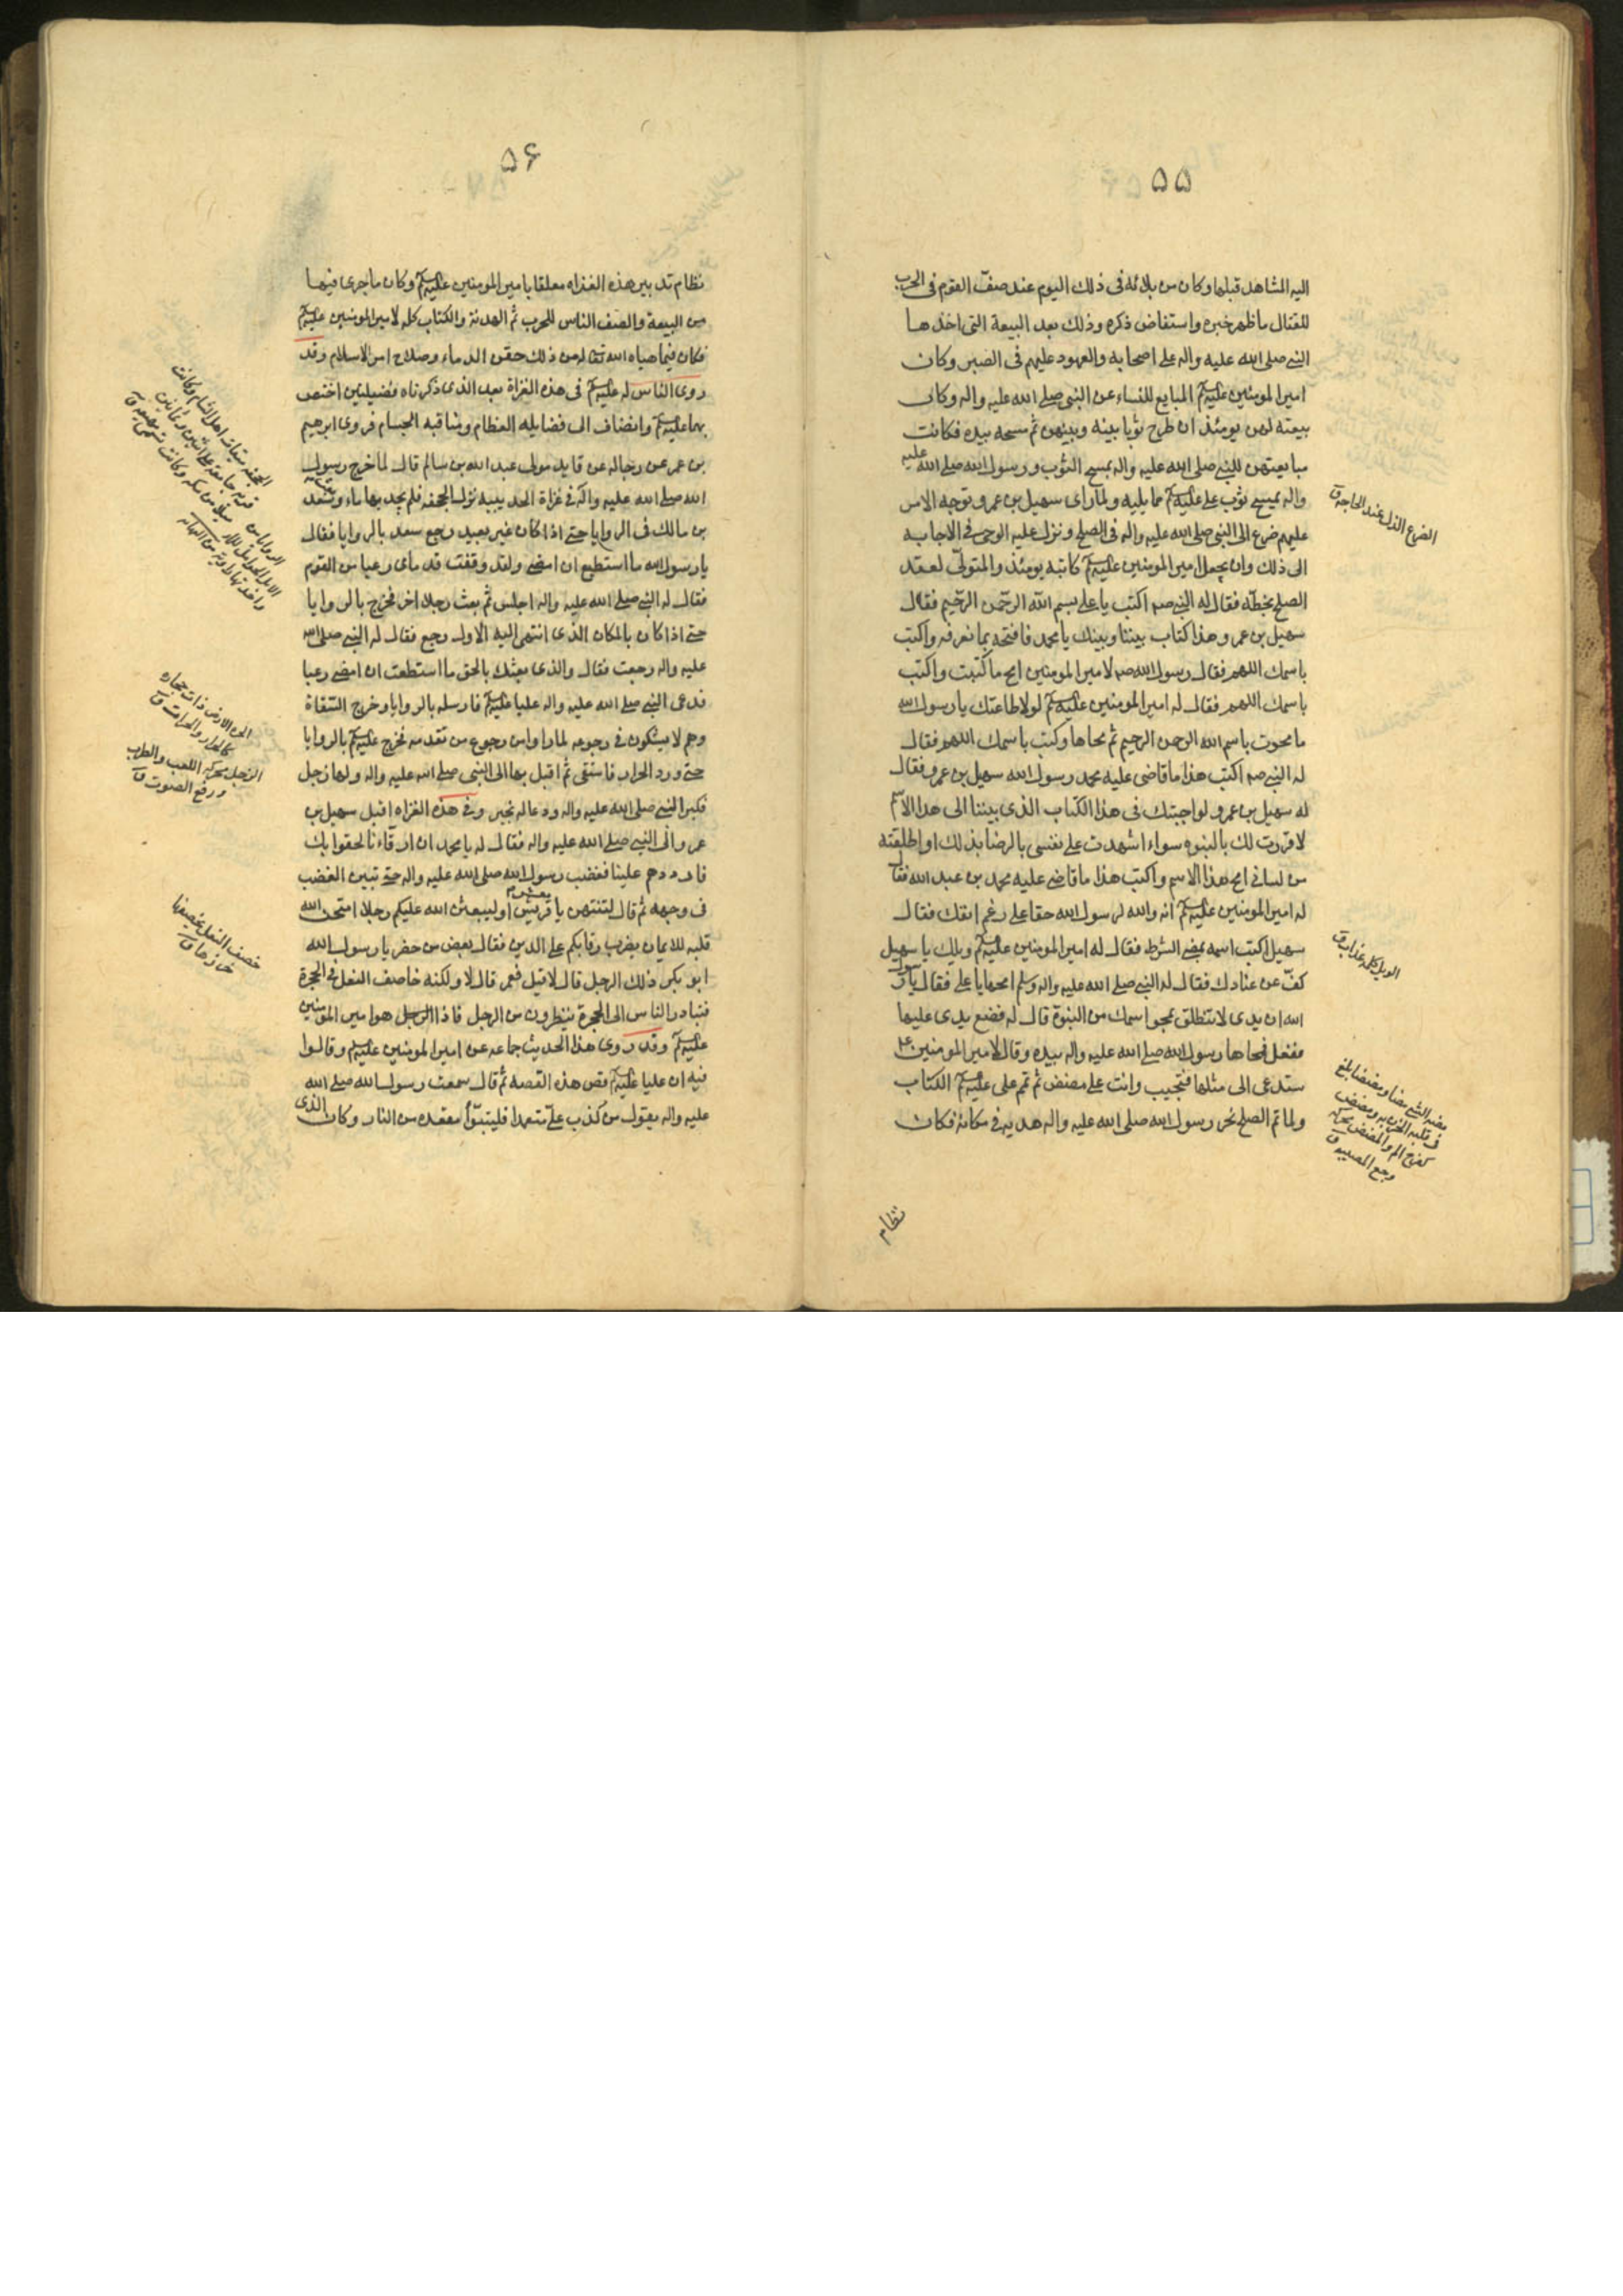 ۵۵
اليه المشاهد قبلها وكان من بلائه فى ذلك اليوم عند صفّ القوم فى الحرب
للقتال ما ظهر خبره واستفاض ذكره وذلك بعد البيعة التى اخذها
النبى صلى الله عليه واله على اصحابه والعهود عليهم فى الصبر وكان
امير المومنين عليه السلم المبايع للنساء عن النبى صلى الله عليه واله وكان
بيعته لهن يومئذ ان طرح ثوبا بينه وبينهن ثم مسحه بيده فكانت
مبايعتهن للنبى صلى الله عليه واله بمسح الثوب ورسول الله صلى الله عليه
واله يمسح ثوب على عليه السلم مما يليه ولما راى سهيل بن عمرو توجه الامر
عليهم ضرع الى النبى صلى الله عليه واله فى الصلح ونزل عليه الوحى فى الاجابة
الى ذلك وان يجعل امير المومنين عليه السلم كاتبه يومئذ والمتولّى لعقد
الصلح بخطّه فقال له النبى صم اكتب يا على بسم الله الرحمن الرحيم فقال
سهيل بن عمرو هذا كتاب بيننا وبينك يا محمد فافتحه بما نعرفه واكتب
باسمك اللهم فقال رسول الله صم لامير المومنين امح ما كتبت واكتب
باسمك اللهم فقال له امير المومنين عليه السلم لولا طاعتك يا رسول الله
ما محوت باسم الله الرحمن الرحيم ثم محاها وكتب باسمك اللهم فقال
له النبى صم اكتب هذا ما قاضى عليه محمد رسول الله سهيل بن عمرو فقال
له سهيل بن عمرو لو اجبتك فى هذا الكتاب الذى بيننا الى هذا الاسم
لاقررت لك بالنبوه سواء اشهدت على نفسى بالرضا بذلك او اطلقته
من لسانى امح هذا الاسم واكتب هذا ما قاضى عليه محمد بن عبد الله فقال
له امير المومنين عليه السلم انه والله لرسول الله حقا على رغم انفك فقال
سهيل اكتب اسمه يمضى الشرط فقال له امير المومنين عليه السلم ويلك يا سهيل
كفّ عن عنادك فقال له النبى صلى الله عليه واله وسلم امحها يا على فقال يا رسول
الله ان يدى لا تنطلق بمحو اسمك من النبوة قال له فضع يدى عليها
ففعل فمحاها رسول الله صلى الله عليه واله بيده وقال لامير المومنين ع
ستدعى الى مثلها فتجيب وانت على مضض ثم تمم على عليه السلم الكتاب
ولما تم الصلح نحر رسول الله صلى الله عليه واله هديه فى مكانه فكان
نظام
الضرع التذلل عند الحاجة ق
الويل كلمة عذاب ق
مضه الشئ مضا ومضيضا بلغ
فى قلبه الحزن به ومضض
كفرح الم والمضض محركة
وجع المصيبه ق
۵۶
نظام تدبير هذه الغزاه معلقا بامير المومنين عليه السلم وكان ما جرى فيها
من البيعة والصف الناس للحرب ثم الهدنة والكتاب كله لامير المومنين عليه السلم
فكان فيما هياه الله تعا له من ذلك حقن الدماء وصلاح امر الاسلام وقد
روى الناس له عليه السلم فى هذه الغزاة بعد الذى ذكرناه فضيلتين اختص
بهما عليه السلم وانضاف الى فضايله العظام ومناقبه الجسام فروى ابرهيم
بن عمر عن رجاله عن قايد مولى عبد الله بن سالم قال لما خرج رسول
الله صلى الله عليه واله فى غزاة الحديبيه نزل الجحفه فلم يجد بها ماء فبعث سعد
بن مالك فى الروايا حتى اذا كان غير بعيد رجع سعد بالروايا فقال
يا رسول الله ما استطيع ان امضى ولقد وقفت قدماى رعبا من القوم
فقال له النبى صلى الله عليه واله اجلس ثم بعث رجلا اخر فخرج بالروايا
حتى اذا كان بالمكان الذى انتهى اليه الاول رجع فقال له النبى صلى الله
عليه واله رجعت فقال والذى بعثك بالحق ما استطعت ان امضى رعبا
فدعى النبى صلى الله عليه واله عليا عليه السلم فارسله بالروايا وخرج السقاة
وهم لا يشكون فى رجوعه لما راوا من رجوع من تقدمه فخرج عليه السلم بالروايا
حتى ورد الحرار فاستقى ثم اقبل بها الى النبى صلى الله عليه واله ولها زجل
فكبر النبى صلى الله عليه واله ودعا له بخير وفى هذه الغزاه اقبل سهيل بن
عمرو الى النبى صلى الله عليه واله فقال له يا محمد ان ارقاءنا لحقوا بك
فارددهم علينا فغضب رسول الله صلى الله عليه واله حتى تبين الغضب
فى وجهه ثم قال لتنتهن يا معشر قريش او ليبعثن الله عليكم رجلا امتحن الله
قلبه للايمان يضرب رقابكم على الدين فقال بعض من حضر يا رسول الله
ابو بكر ذلك الرجل قال لا قيل فعمر قال لا ولكنه خاصف النعل فى الحجرة
فتبادر الناس الى الحجرة ينظرون من الرجل فاذا الرجل هو امير المومنين
عليه السلم وقد روى هذا الحديث جماعه عن امير المومنين عليه السلم وقالوا
فيه ان عليا عليه السلم قص هذه القصه ثم قال سمعت رسول الله صلى الله
عليه واله يقول من كذب علىّ متعمدا فليتبوّأ مقعده من النار وكان الذى
الجحفه ميقات اهل الشام وكانت
قريه جامعه على اثنين وثمانين
ميلا من مكه وكانت تسمى مهيعه ق
الحره الارض ذات حجاره
كالحرار والحرات ق
الزجل محركه اللعب والطرب
ورفع الصوت ق
خصف النعل يخصفها
خرزها ق